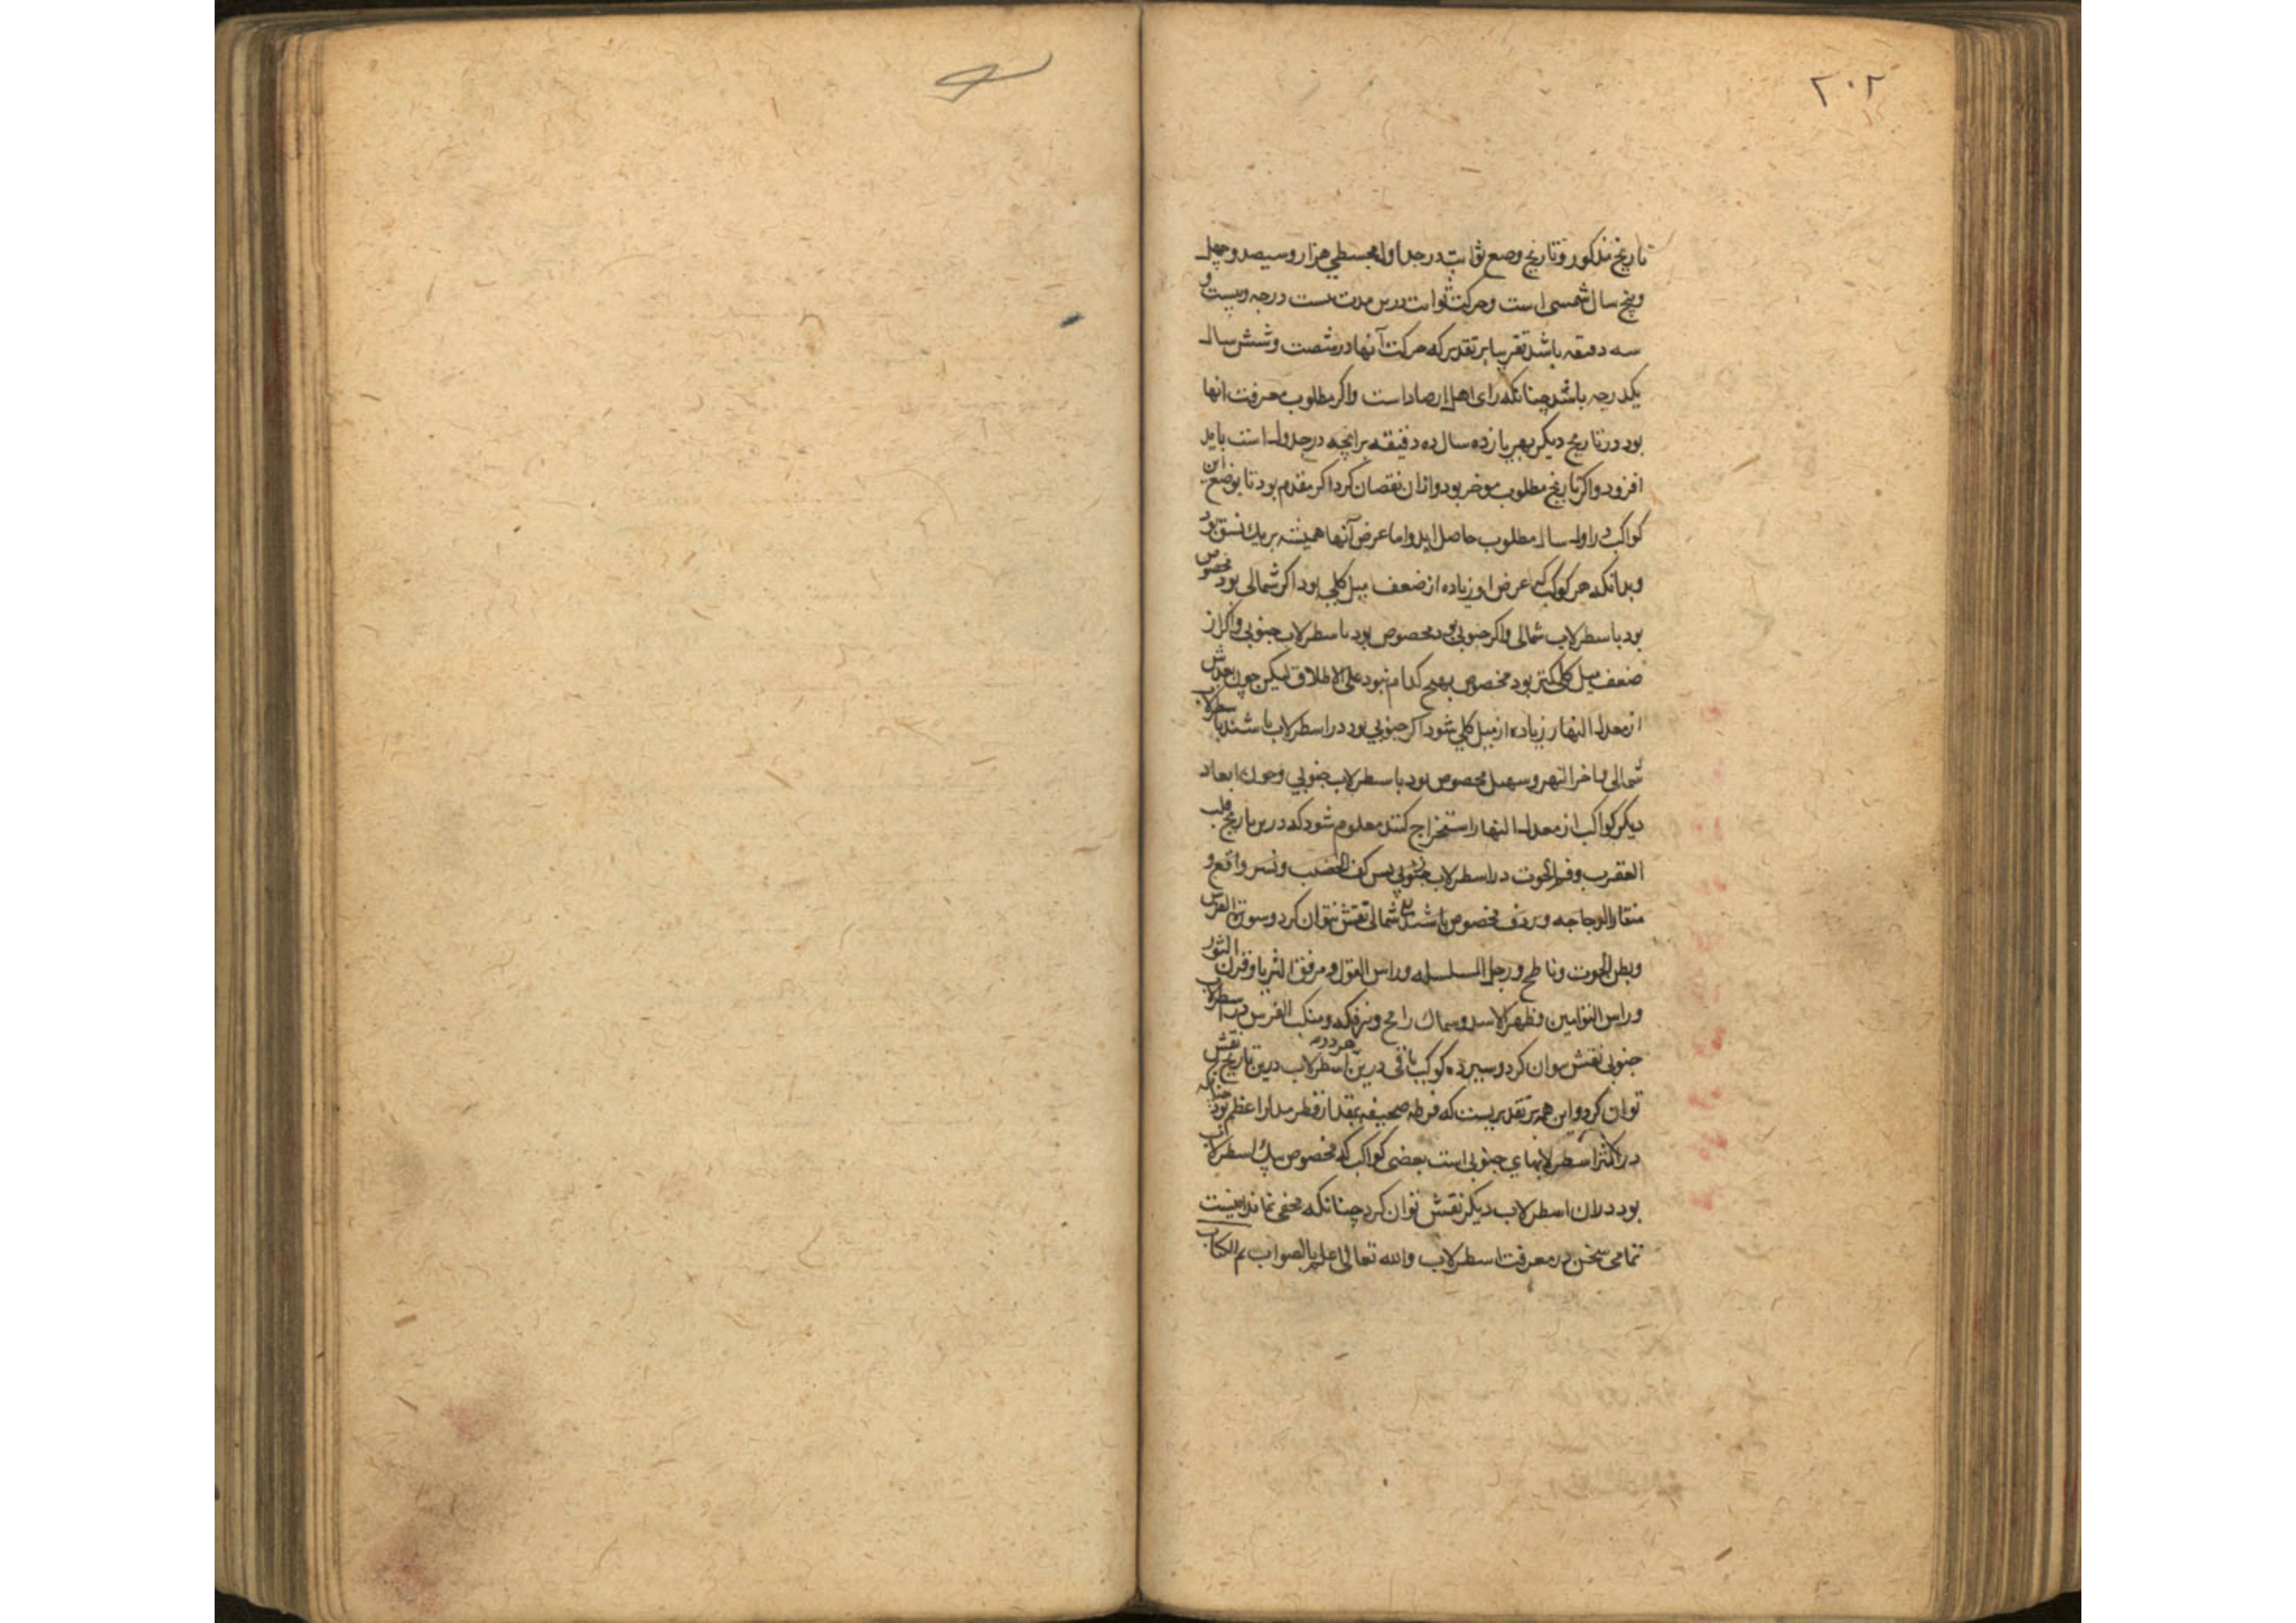 ۲۰۲
تاریخ مذکور و تاریخ وضع ثوابت در جداول مجسطی هزار و سیصد و چهل
و پنج سال شمسی است و حرکت ثوابت درین مدت بیست درجه و بیست و
سه دقیقه باشد تقریبا بر تقدیر که حرکت آنها در شصت و شش سال
یکدرجه باشد چنانکه رای اهل ارصاد است واکر مطلوب معرفت انها
بود در تاریخ دیکر بهر یازده سال ده دقیقه برانچه در جدول است باید
افزود واکر تاریخ مطلوب موخر بود وازان نقصان کرد اکر مقدم بود تا بوضع این
کواکب در اول سال مطلوب حاصل اید واما عرض آنها همیشه بر یك نسق بود
وبدانکه هر کوکب که عرض او زیاده از ضعف میل کلی بود اکر شمالی بود مخصوص
بود باسطرلاب شمالی واکر جنوبی بود مخصوص بود باسطرلاب جنوبی واکر از
ضعف میل کلی کمتر بود مخصوص بهیچ کدام نبود علی الاطلاق لیکن چون بعدش
از معدل النهار زیاده از میل کلی شود اکر جنوبی بود در اسطرلاب باشد با سطرلاب
شمالی اخر النهر و سهیل مخصوص بود باسطرلاب جنوبی و چون ابعاد
دیکر کواکب از معدل النهار استخراج کنند معلوم شود که درین تاریخ قلب
العقرب و فم الحوت در اسطرلاب جنوبی پس کف الخضیب و نسر واقع و
منقار الدجاجه و ردف مخصوص باشند شمالی نقش نتوان کرد و سرة الفرس
و بطن الحوت و ناطح و رجل السلسله و راس الغول و مرفق الثریا و قرن الثور
و راس التوامین و ظهر الاسد و سماك رامح و نیر فکه و منکب الفرس در اسطرلاب
جنوبی نقش توان کرد و سیزده کوکب باقی درین هر دو اسطرلاب درین تاریخ نقش
توان کرد و این همه بر تقدیریست که قطر صحیفه بقدر قطر مدار اعظم بود چنانکه
در اکثر اسطرلابهای جنوبی است بعضی کواکب که مخصوص بیك اسطرلاب
بود دران اسطرلاب دیکر نقش توان کرد چنانکه مخفی نماند اینست
تمامی سخن در معرفت اسطرلاب والله تعالی اعلم بالصواب تم الکتاب